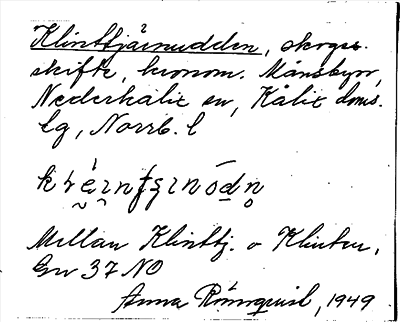 Klinttjärnudden, skogs-
skifte, kronom. Månsbyn,
Nederkalix sn, Kalix doms.
lg, Norrb. l
Mellan Klinttj. o Klinten.
Gv 37 NO
Anna Rönnqvist, 1949